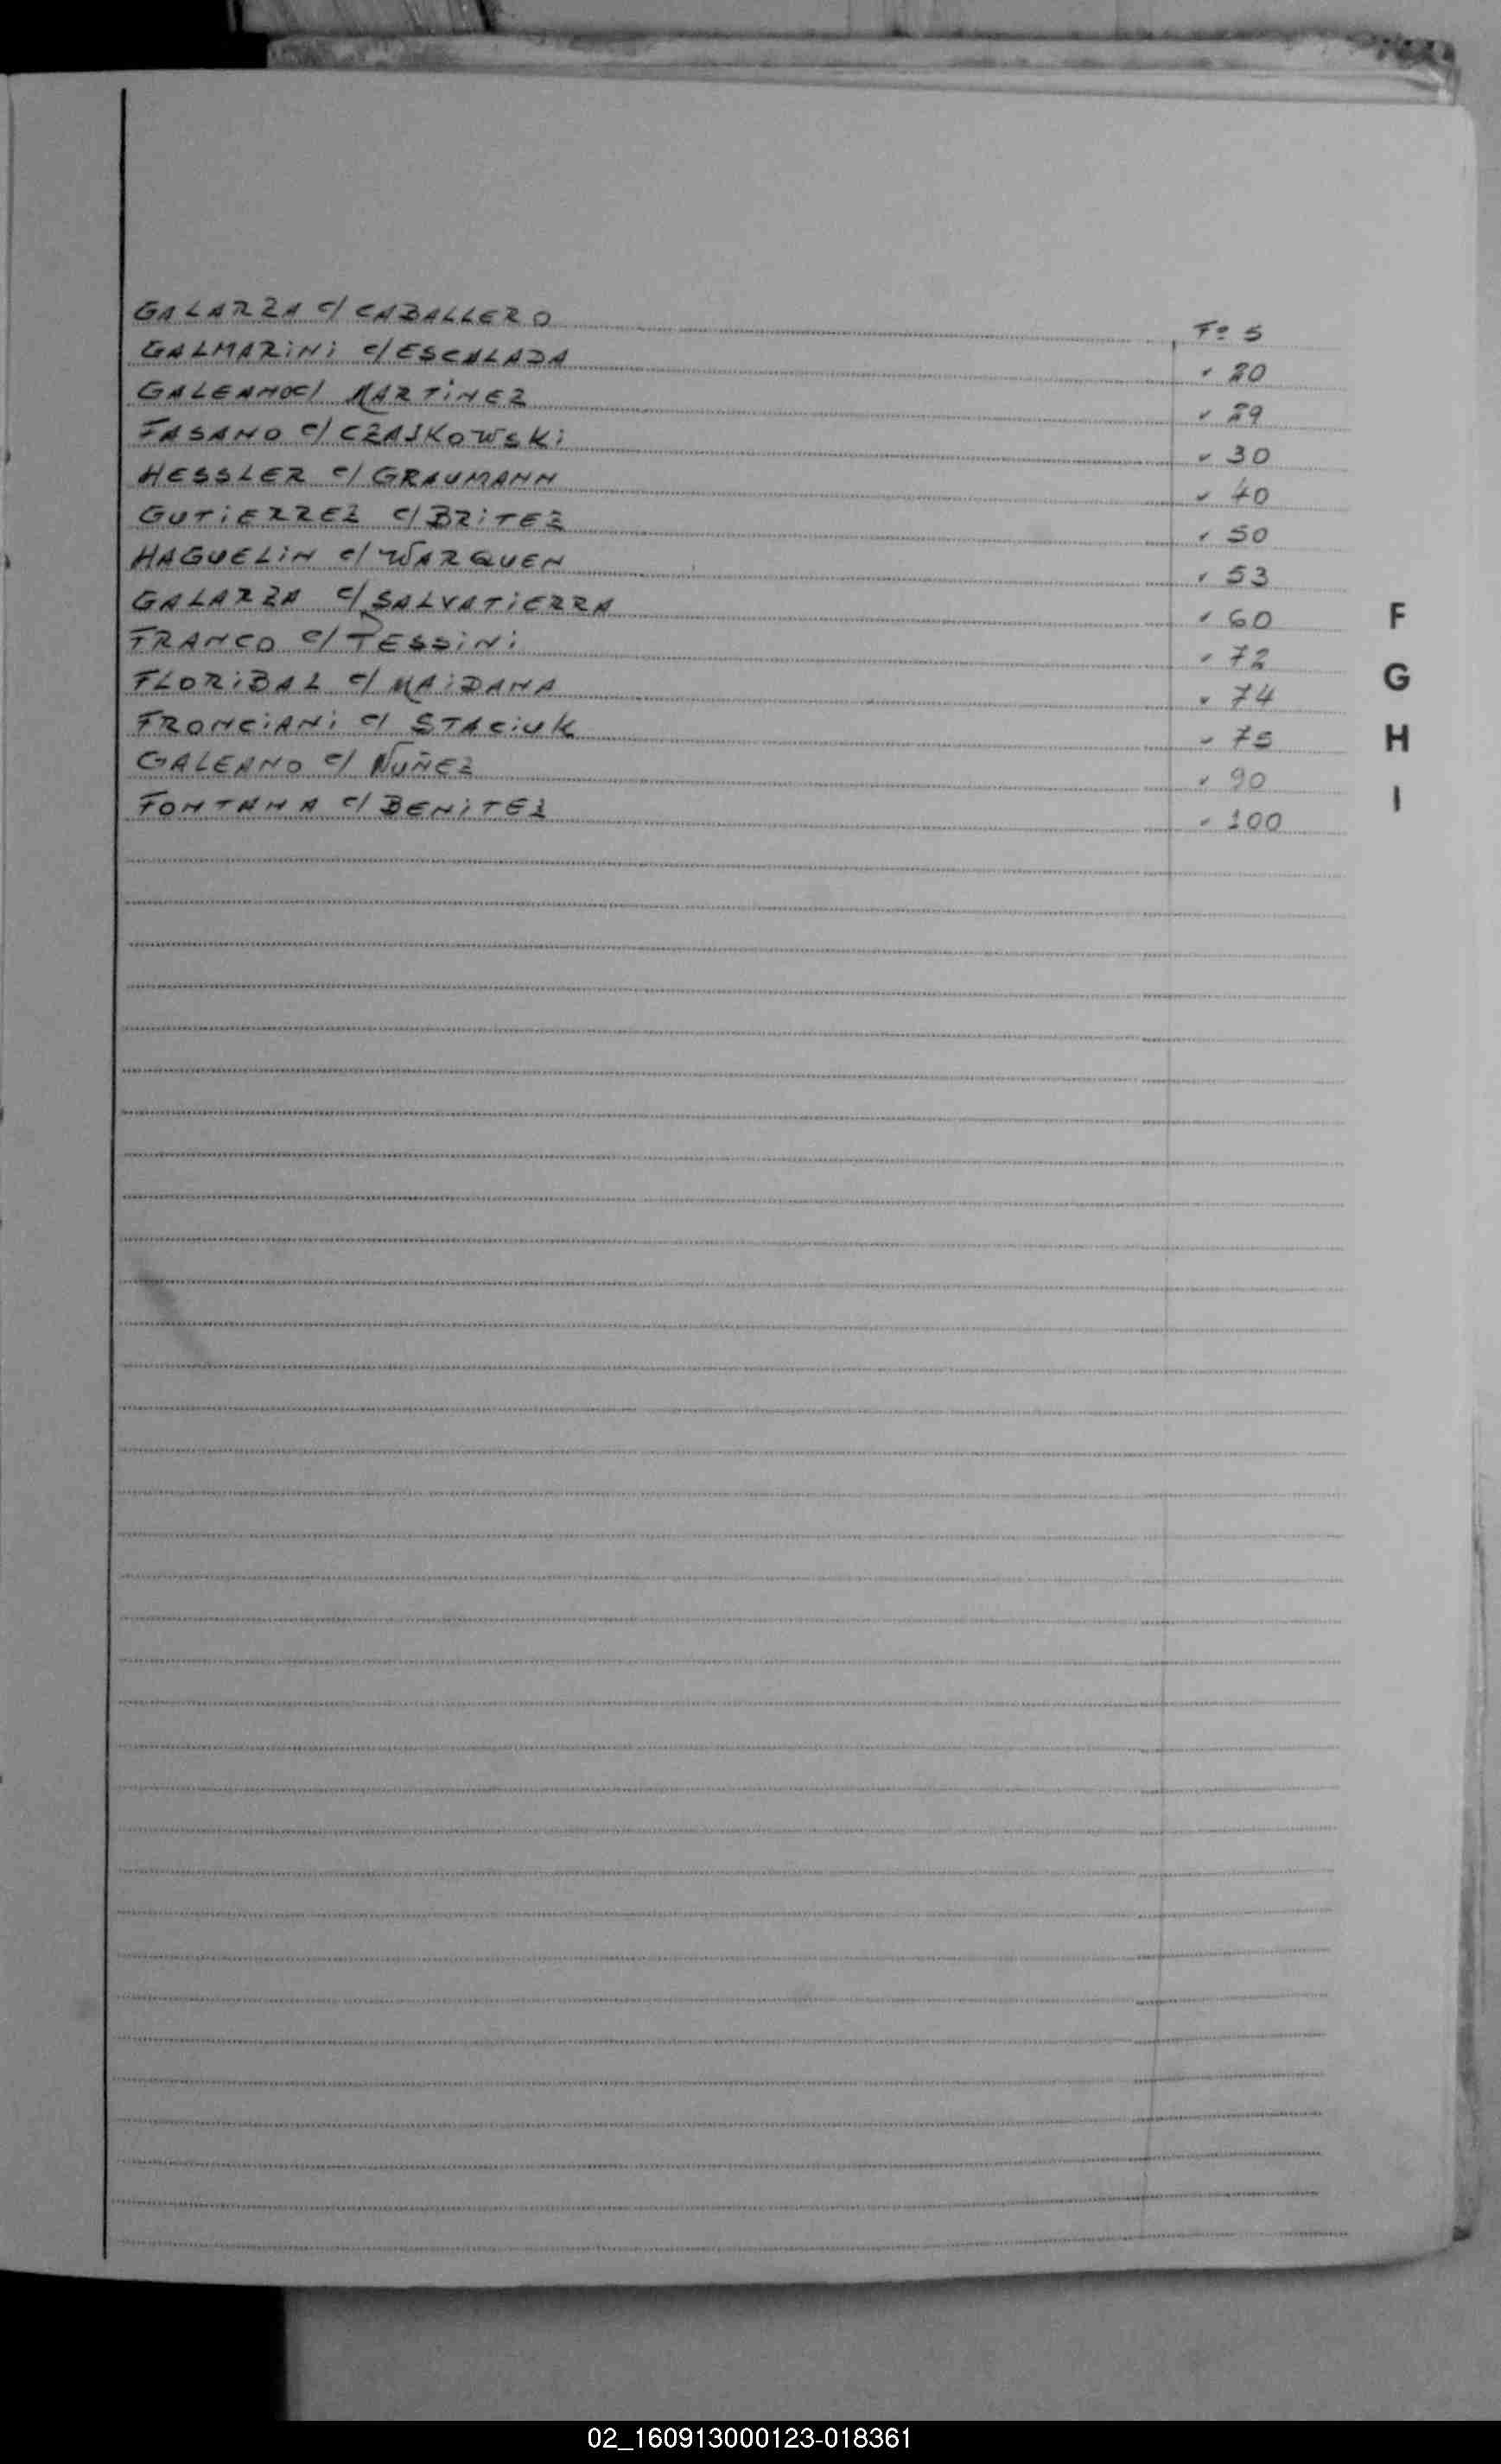 GALARZA c/ CABALLERO Fº 5
GALMARiNi c/ ESCALADA " 20
GALEANO c/ MARTiNEZ " 29
FASANO c/ CZAJKOWSKi " 30
HESSLER c/ GRAUMANN " 40
GUTiERREZ c/ BRiTEZ " 50
HAGUELiN c/ WARQUEN " 53
GALARZA c/ SALVATiERRA " 60
FRANCO c/ TESSiNi " 72
FLORiBAL c/ MAiDANA " 74
FRONCiANi c/ STACiUK " 75
GALEANO c/ NUÑEZ " 90
FONTANA c/ BENiTEZ " 100
F
G
H
I
02_160913000123-018361